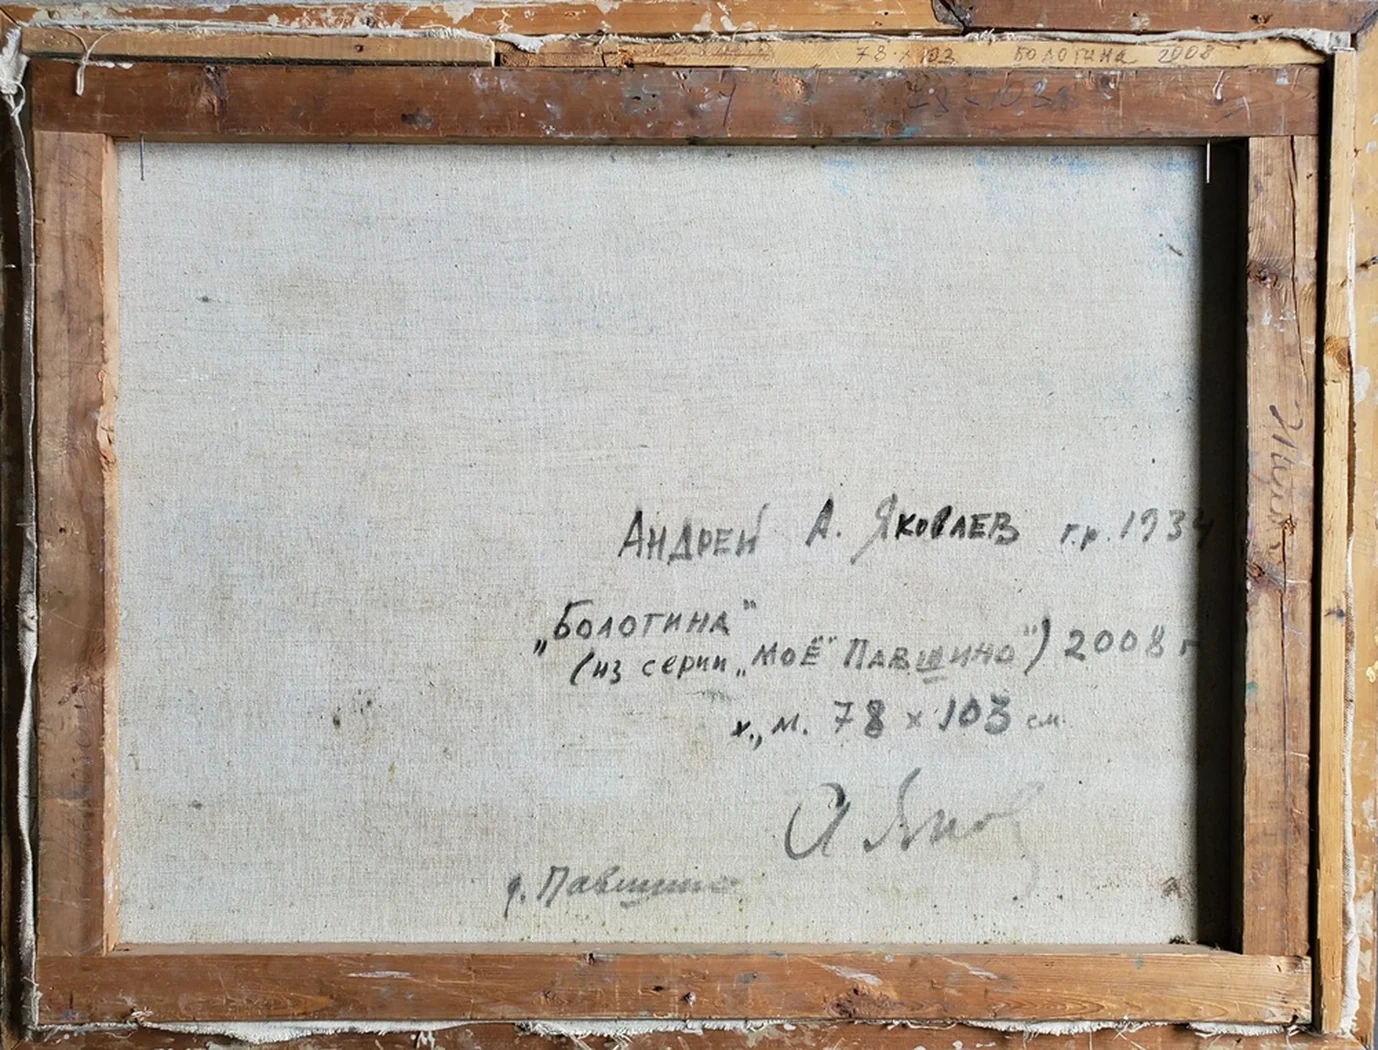 78 × 103 Бологина 2008
78 × 103
Андрей А. Яковлев г.р. 1934
„Бологина"
(из серии „Моё" Павшино") 2008 г
х., м. 78 × 103 см
А Яков
д. Павшино